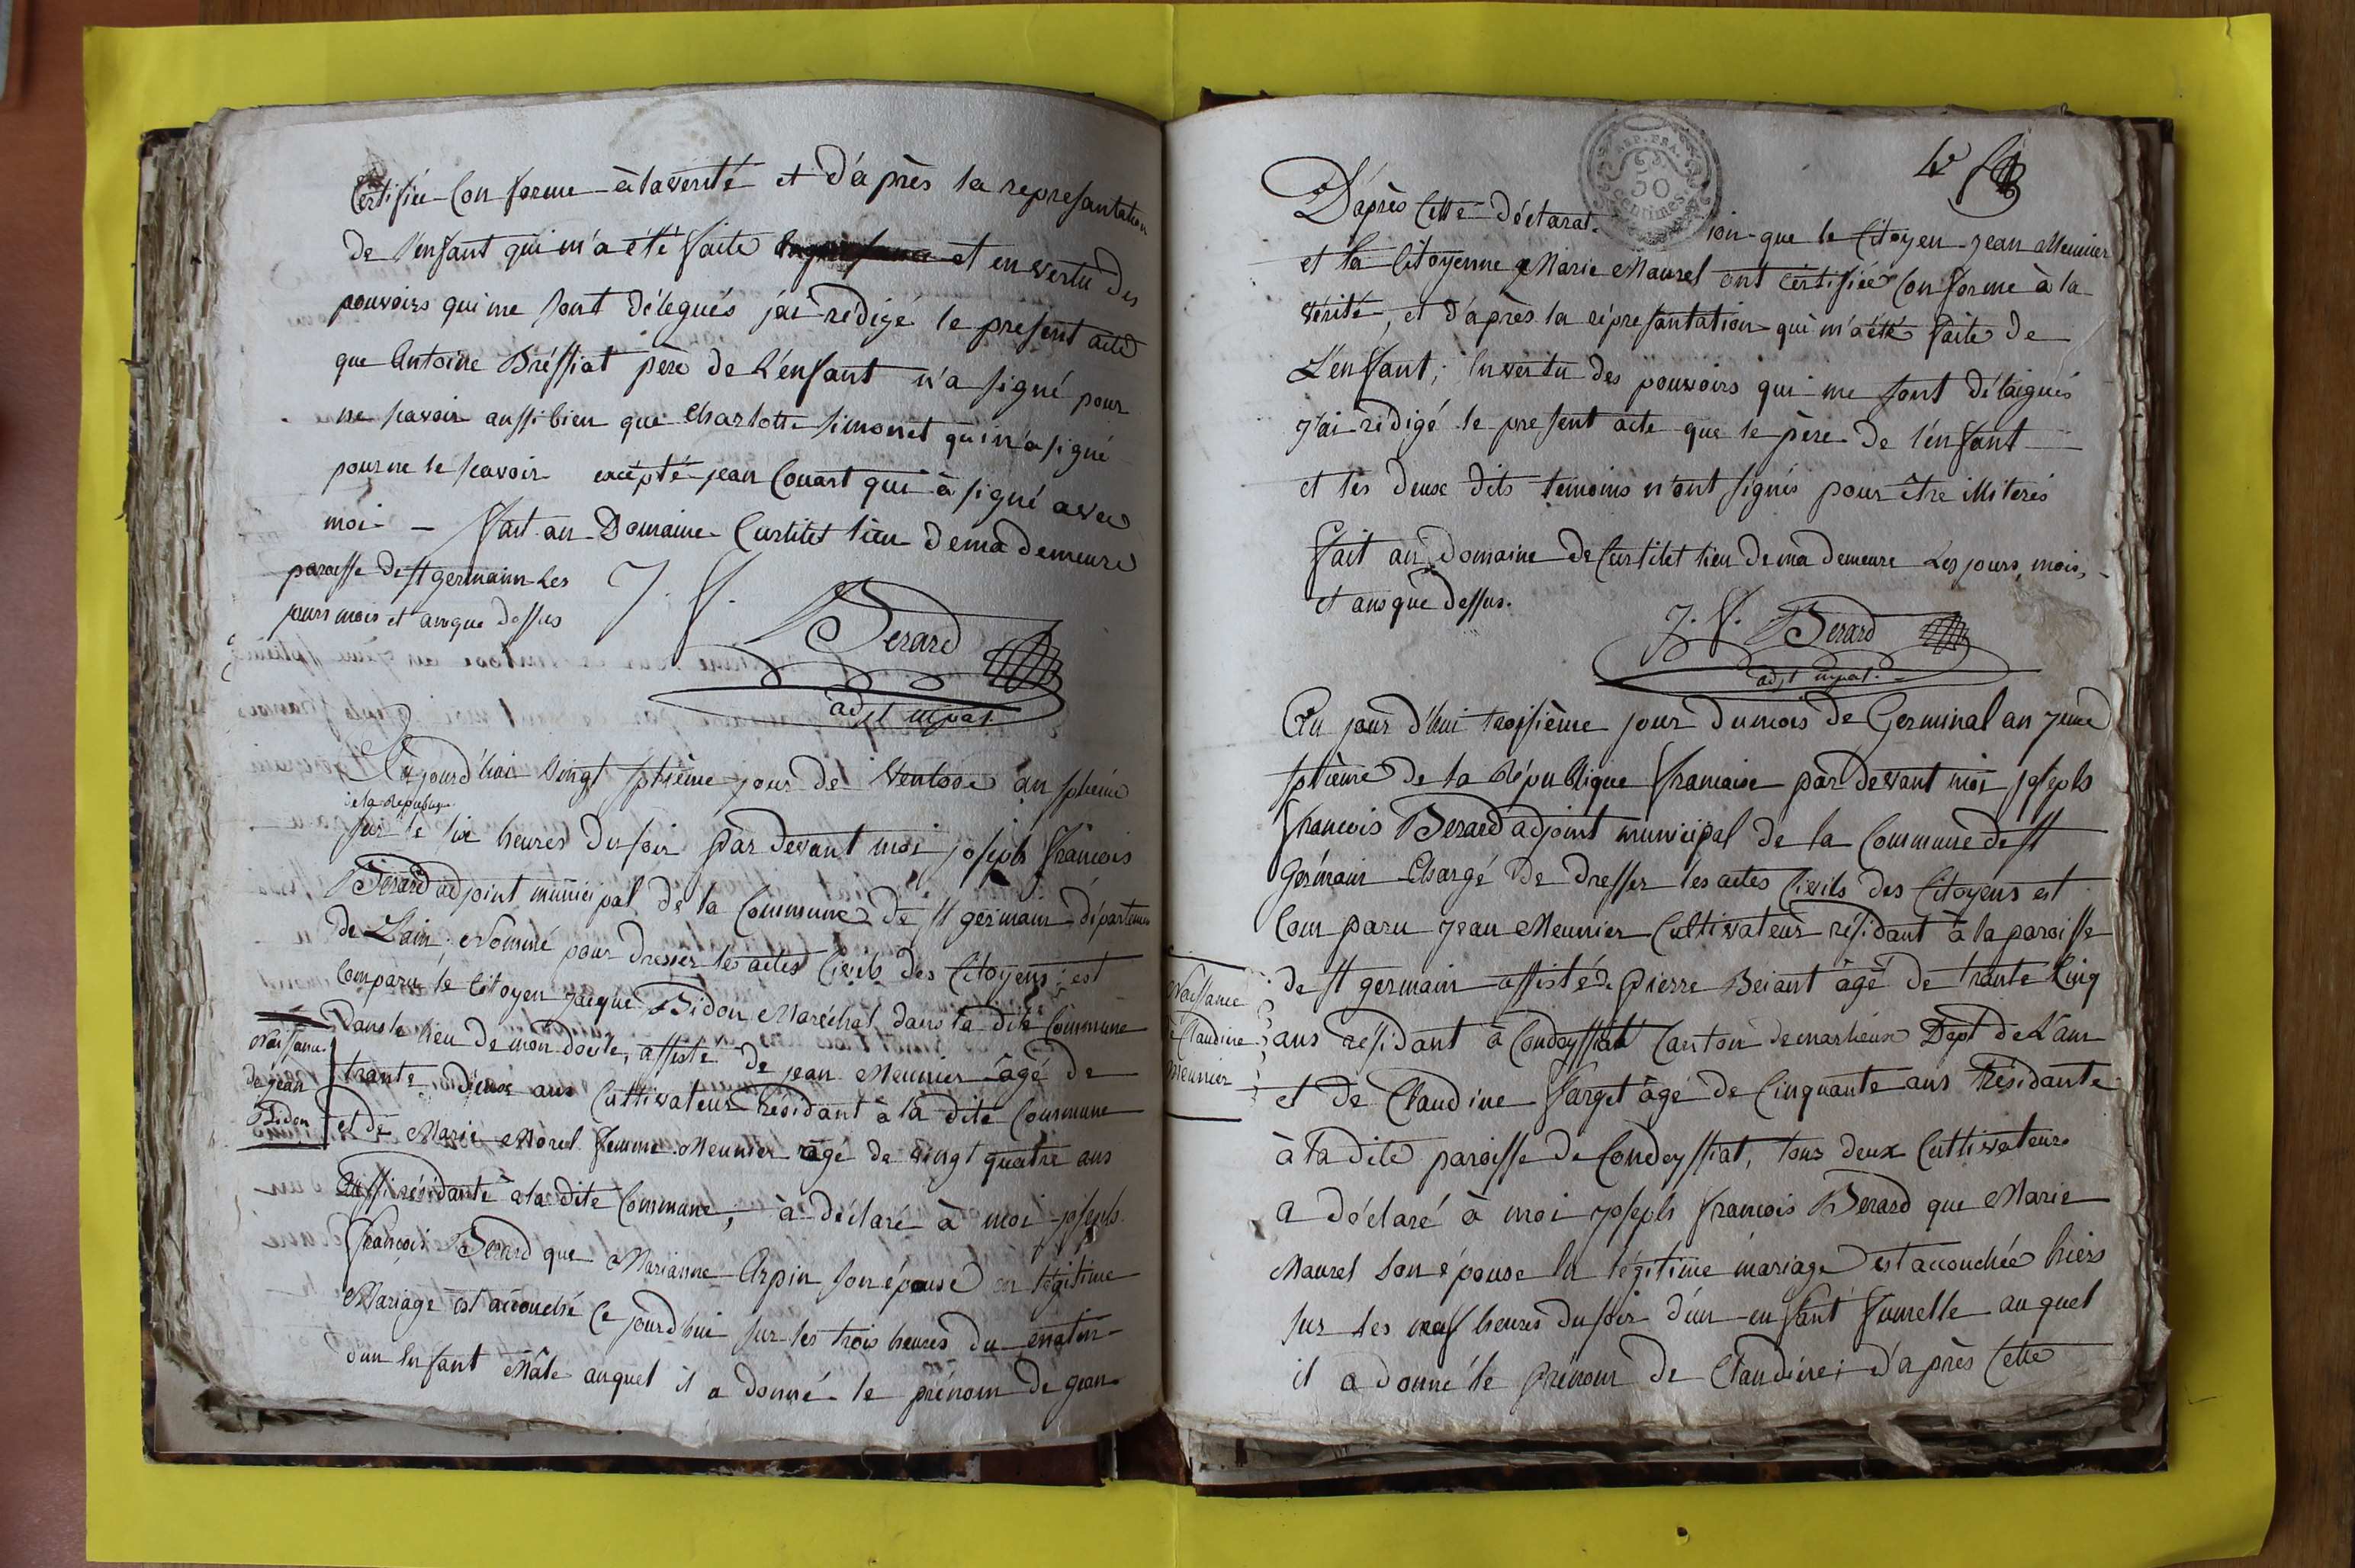 Certifiée Conforme à la vérité et d'après la represantation
de l'enfant qui m'a été faite et en vertu des
pouvoirs qui me sont délegués j'ai redigé le present acte
que Antoine Bréssiat père de L'enfant n'a signé pour
ne scavoir aussi bien que Charlotte Simonet qui n'a signé
pour ne le scavoir excépté jean Couart qui à signé avec
moi — fait au Domaine Curtilet lieu de ma demeure
paroisse de st germain Les
jours mois et an que dessus
J. f. Berard
adjt mpal
Aujourd'hui vingt sptième jour de Ventose an sptième
de la République
sur le six heures du soir par devant moi joseph françois
Berard adjoint municipal de la Commune de st germain départemen
de L'ain Nommé pour dresser les actes Civils des Citoyens ; est
Comparu le Citoyen jacque Bidon Maréchal dans la dite Commune
Dans le lieu de mon docile, assisté de jean Meunier âgé de
trante deux ans Cultivateur résidant à la dite Commune
et de Marie Morel femme Meunier agé de vingt quatre ans
Aussi résidante à la dite Commune, à déclaré à moi joseph
françois Berard que Marianne Arpin son épouse en légitime
Mariage est accouché Ce jourd'hui sur les trois heures du matin
d'un Enfant Mâle auquel il a donné le prénom de jean
Naissance
de jean
Bidon
REP. FRA.
50
Centimes
D'après Cette déclarat. ion que le Citoyen jean Meunier
et la Citoyenne Marie Maurel ont Certifiée Conforme à la
vérité, et d'après la represantation qui m'a été faite de
L'enfant ; En vertu des pouvoirs qui me sont délaigués
j'ai redigé le present acte que le père de l'enfant
et les deux dits temoins n'ont signés pour être illiterés
fait au Domaine de Curtilet lieu de ma demeure Les jours, mois,
et ans que dessus.
J. f. Berard
adjt mpal.
Au jour d'hui troisième jour du mois de Germinal an 7eme
sptième de la République francaise par devant moi joseph
francois Berard adjoint municipal de la Commune de st
Germain Chargé de dresser les actes Civils des Citoyens est
Comparu jean Meunier Cultivateur résidant à la paroisse
de st germain assisté de pierre Beiant âgé de trante Cinq
ans résidant à Condeyssiat Canton de marlieux Dept de L'ain
et de Claudine farget âgé de Cinquante ans Résidante
à la dite paroisse de Condeyssiat, tous deux Cultivateurs
a déclaré à moi joseph francois Berard que Marie
Maurel son épouse En légitime mariage est accouchée hiers
sur les neuf heures du soir d'un enfant fumelle auquel
il a donné le prénom de Claudine ; d'après Cette
Naissance
Claudine
Meunier